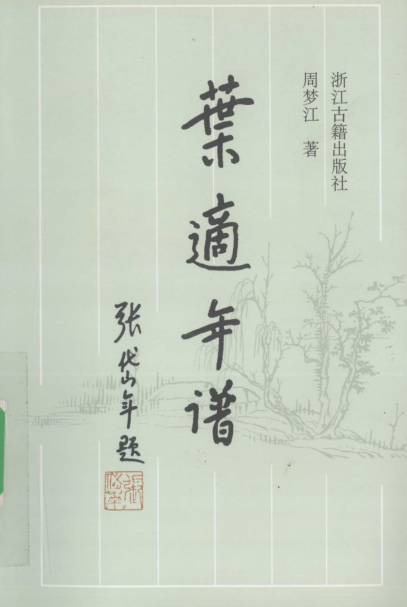 浙江古籍出版社
周梦江 著
葉適年谱
张岱年题